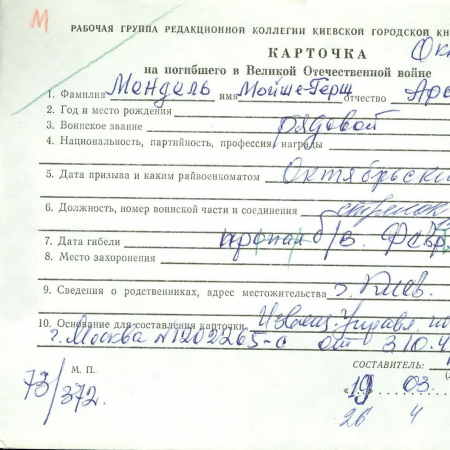 М
РАБОЧАЯ ГРУППА РЕДАКЦИОННОЙ КОЛЛЕГИИ КИЕВСКОЙ ГОРОДСКОЙ КН
КАРТОЧКА Ок
на погибшего в Великой Отечественной войне
1. Фамилия Мендель имя Мойше-Герш отчество Аро
2. Год и место рождения
3. Воинское звание рядовой
4. Национальность, партийность, профессия, награды
5. Дата призыва и каким райвоенкоматом Октябрьски
6. Должность, номер воинской части и соединения стрелок
7. Дата гибели пропал б/в.
8. Место захоронения
9. Сведения о родственниках, адрес местожительства г. Киев.
10. Основание для составления карточки Извещ. Управл. по
г. Москва №1202265-с от 310.4
СОСТАВИТЕЛЬ:
М. П.
73/372.
«19» 03
26 4